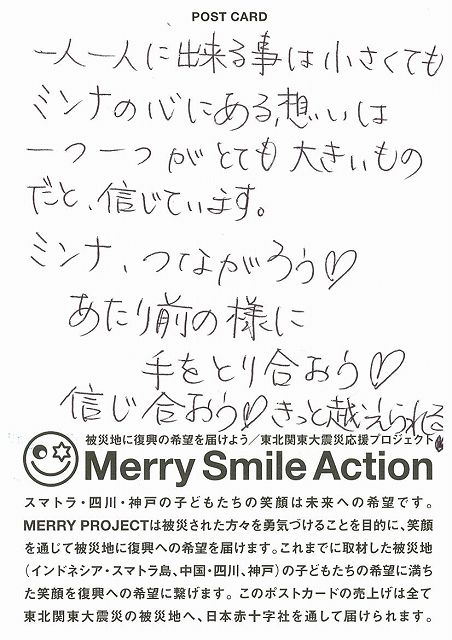 POST CARD
一人一人に出来る事は小さくても
ミンナの心にある想いは
一つ一つがとても大きいもの
だと、信じています。
ミンナ、つながろう♡
あたり前の様に
手をとり合おう♡
信じ合おう♡きっと越えられる
被災地に復興の希望を届けよう／東北関東大震災応援プロジェクト
Merry Smile Action
スマトラ・四川・神戸の子どもたちの笑顔は未来への希望です。
MERRY PROJECTは被災された方々を勇気づけることを目的に、笑顔
を通じて被災地に復興への希望を届けます。これまでに取材した被災地
（インドネシア・スマトラ島、中国・四川、神戸）の子どもたちの希望に満ち
た笑顔を復興への希望に繋げます。このポストカードの売上げは全て
東北関東大震災の被災地へ、日本赤十字社を通して届けられます。